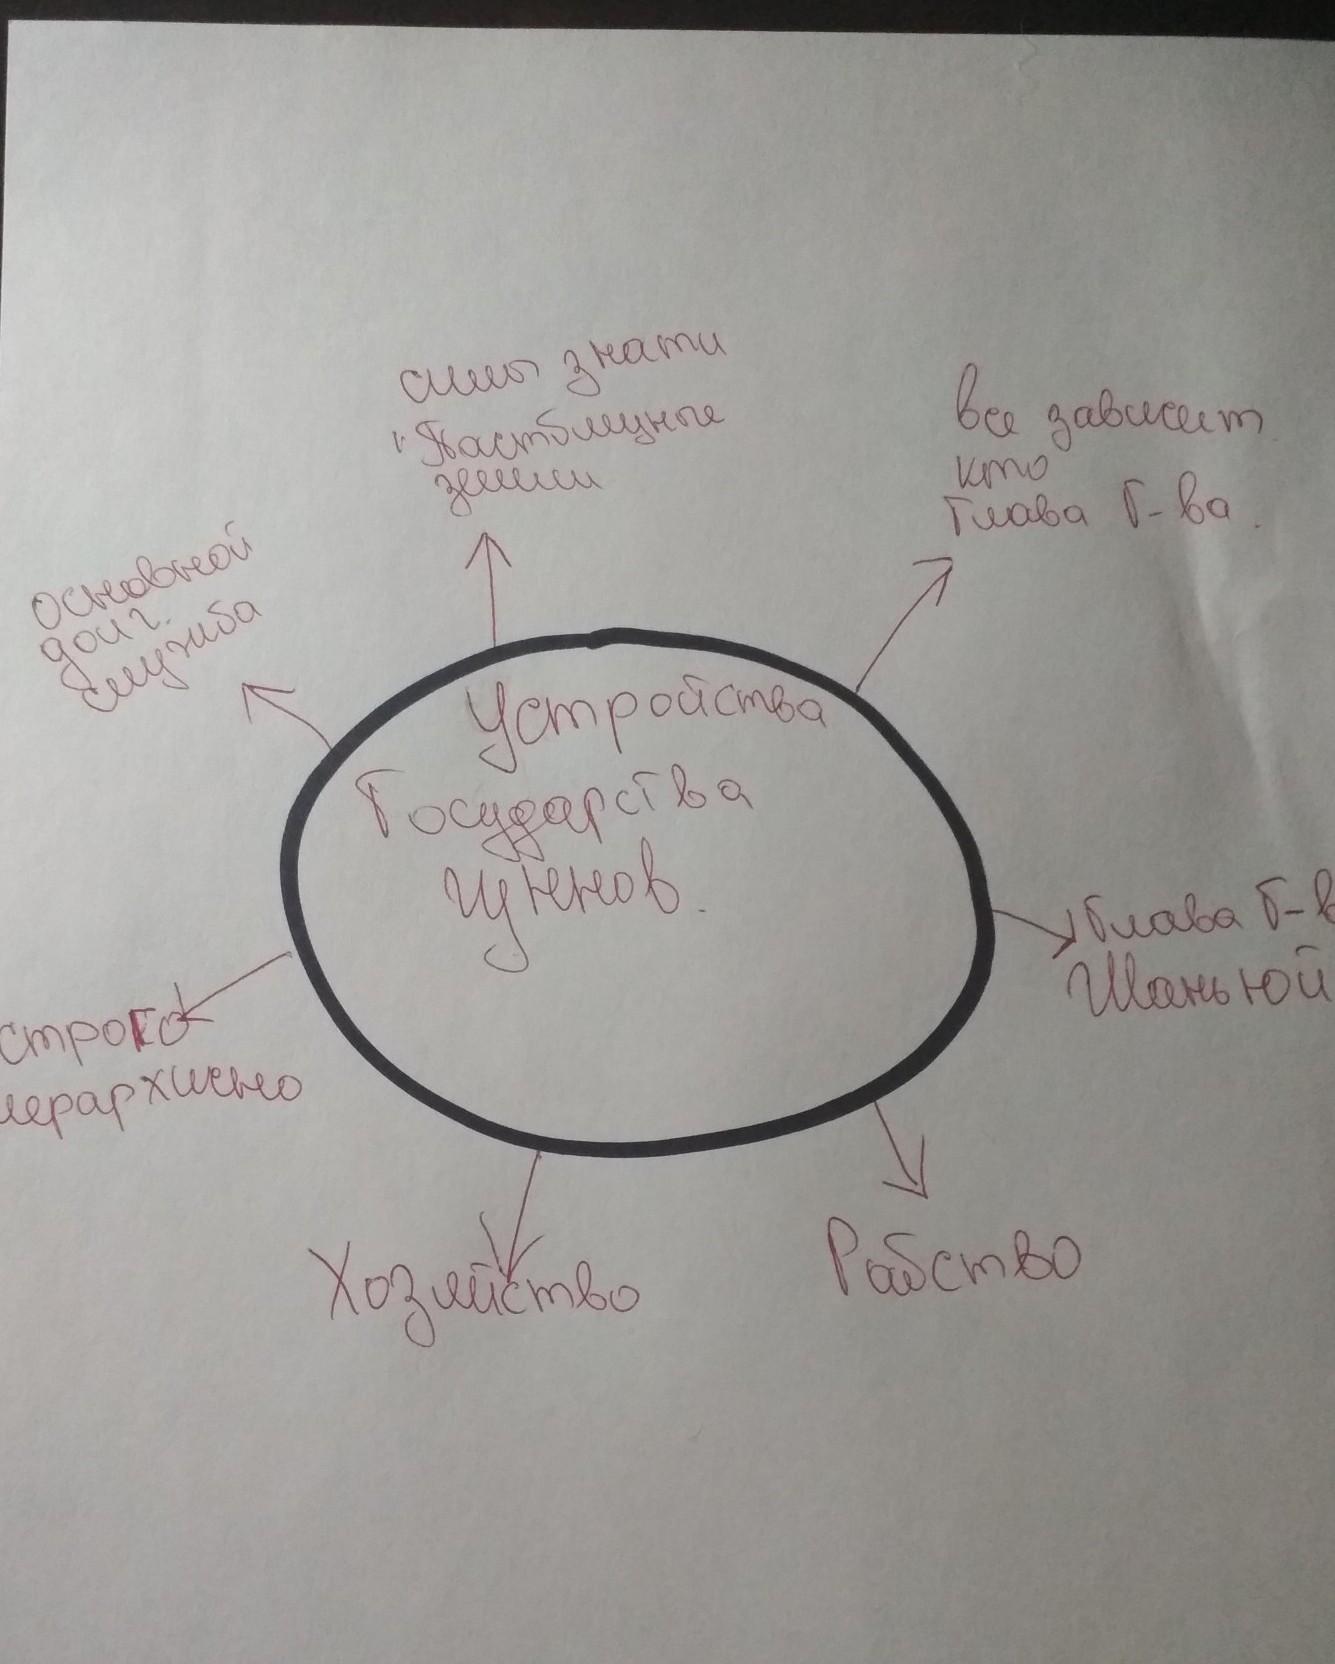 силы знати
и Пастбищные
земли
все зависит
кто
Глава Г-ва.
основной
долг.
служба
Устройства
Государства
гуннов.
Глава Г-в
Шаньюй
строго
иерархично
Хозяйство
Рабство